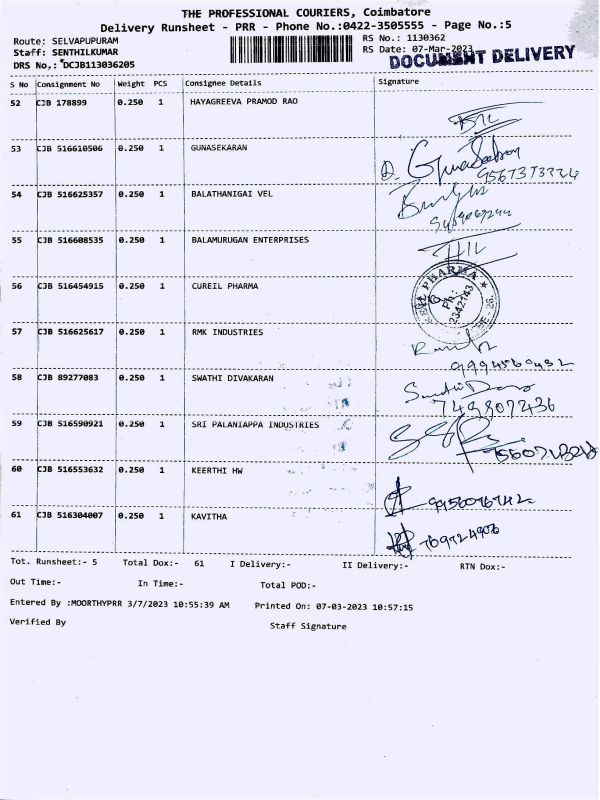 THE PROFESSIONAL COURIERS, Coimbatore
Delivery Runsheet - PRR - Phone No.:0422-3505555 - Page No.:5
Route: SELVAPUPURAM RS No.: 1130362
Staff: SENTHILKUMAR RS Date: 07-Mar-2023
DRS No.: DCJB113036205 DOCUMENT DELIVERY
S No Consignment No Weight PCS Consignee Details Signature
52 CJB 178899 0.250 1 HAYAGREEVA PRAMOD RAO
53 CJB 516610506 0.250 1 GUNASEKARAN
54 CJB 516625357 0.250 1 BALATHANIGAI VEL
55 CJB 516608535 0.250 1 BALAMURUGAN ENTERPRISES
56 CJB 516454915 0.250 1 CUREIL PHARMA
Ph.: 2342143
57 CJB 516625617 0.250 1 RMK INDUSTRIES
58 CJB 89277083 0.250 1 SWATHI DIVAKARAN
7498072436
59 CJB 516590921 0.250 1 SRI PALANIAPPA INDUSTRIES
60 CJB 516553632 0.250 1 KEERTHI HW
61 CJB 516304007 0.250 1 KAVITHA
Tot. Runsheet:- 5 Total Dox:- 61 I Delivery:- II Delivery:- RTN Dox:-
Out Time:- In Time:- Total POD:-
Entered By :MOORTHYPRR 3/7/2023 10:55:39 AM Printed On: 07-03-2023 10:57:15
Verified By Staff Signature